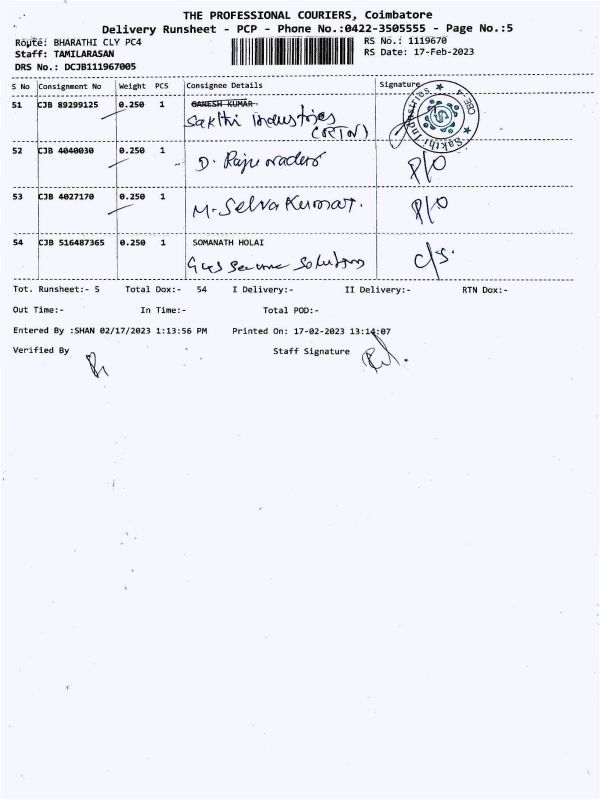 THE PROFESSIONAL COURIERS, Coimbatore
Delivery Runsheet - PCP - Phone No.:0422-3505555 - Page No.:5
Route: BHARATHI CLY PC4
RS No.: 1119670
Staff: TAMILARASAN
RS Date: 17-Feb-2023
DRS No.: DCJB111967005
S No Consignment No Weight PCS Consignee Details Signature
51 CJB 89299125 0.250 1 GANESH KUMAR
Sakthi Industries
(RTN)
Sakthi Industries CBE-4
52 CJB 4040030 0.250 1 D. Raju P/O
53 CJB 4027170 0.250 1 M. Selva Kumar. P/O
54 CJB 516487365 0.250 1 SOMANATH HOLAI
Solutions C/S.
Tot. Runsheet:- 5 Total Dox:- 54 I Delivery:- II Delivery:- RTN Dox:-
Out Time:- In Time:- Total POD:-
Entered By :SHAN 02/17/2023 1:13:56 PM Printed On: 17-02-2023 13:14:07
Verified By Staff Signature